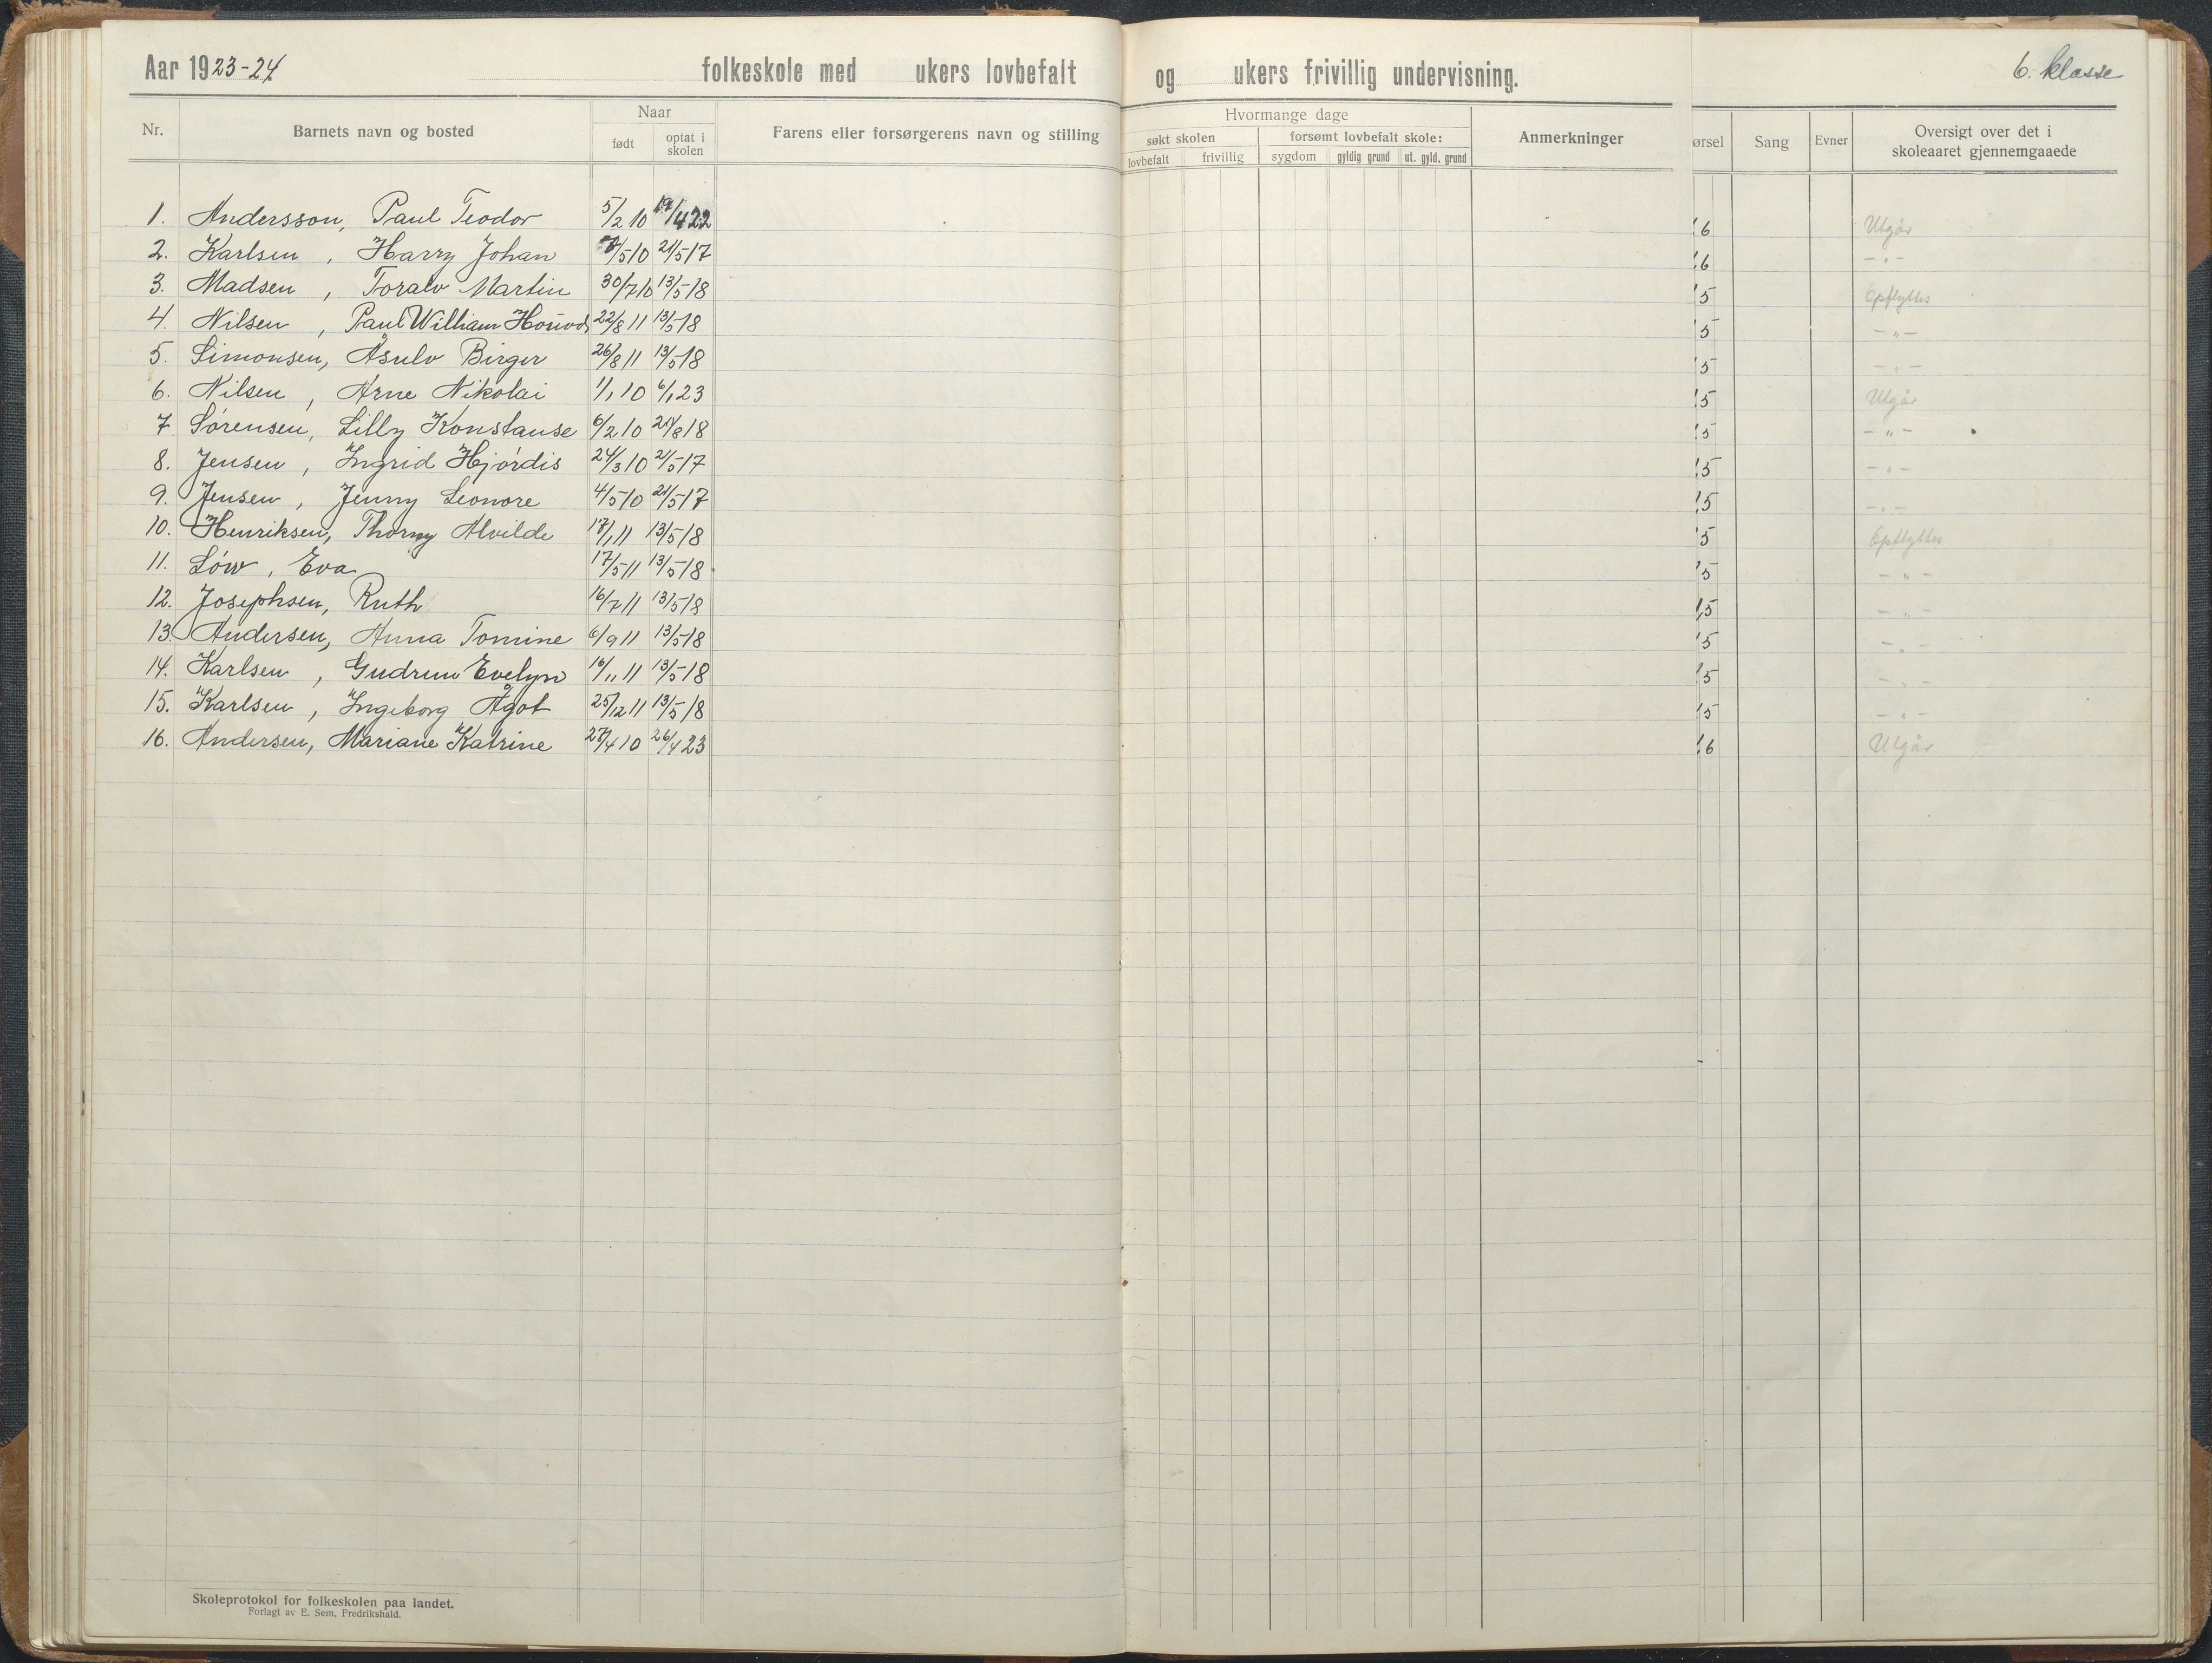 Aar 1923-24 folkeskole med ukers lovbefalt og ukers frivillig undervisning. 6. klasse
Nr. Barnets navn og bosted Naar født optat i skolen Farens eller forsørgerens navn og stilling Hvormange dage søkt skolen lovbefalt frivillig forsømt lovbefalt skole: sygdom gyldig grund ut. gyld. grund Anmerkninger ørsel Sang Evner Oversigt over det i skoleaaret gjennemgaaede
1. Andersson, Paul Teodor 5/2 10 19/4 22 6 Utgår
2. Karlsen, Harry Johan /5 10 21/5 17 6 -"-
3. Madsen, Toralv Martin 30/7 10 13/5 18 5 Opflyttes
4. Nilsen, Paul William 22/8 11 13/5 18 5 -"-
5. Simonsen, Åsulv Birger 26/8 11 13/5 18 5 -"-
6. Nilsen, Arne Nikolai 1/1 10 6/1 23 5 Utgår
7. Sørensen, Lilly Konstanse 6/2 10 21/8 18 5 -"-
8. Jensen, Ingrid Hjørdis 24/3 10 21/5 17 5 -"-
9. Jensen, Jenny Leonore 4/5 10 21/5 17 5 -"-
10. Henriksen, Thorny Alvilde 17/1 11 13/5 18 5 Opflyttes
11. Löw, Eva 17/5 11 13/5 18 5 -"-
12. Josephsen, Ruth 16/7 11 13/5 18 5 -"-
13. Andersen, Anna Tomine 6/9 11 13/5 18 5 -"-
14. Karlsen, Gudrun Evelyn 16/11 11 13/5 18 5 -"-
15. Karlsen, Ingeborg Ågot 25/12 11 13/5 18 5 -"-
16. Andersen, Mariane Katrine 27/4 10 26/4 23 6 Utgår
Skoleprotokol for folkeskolen paa landet.
Forlagt av E. Sem, Fredrikshald.